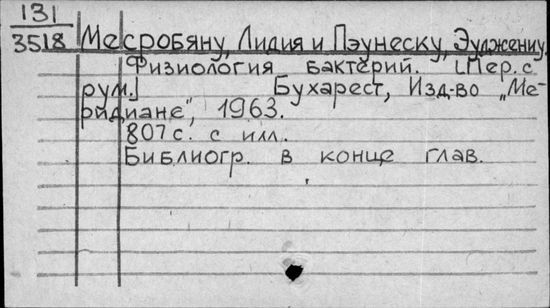 131
3518 Месробяну, Лидия и Пэунеску, Эулжениу.
Физиология бактерий. [Пер. с
рум.] Бухарест, Изд-во „Ме-
ридиане", 1963.
807 с. с илл.
Библиогр. в конце глав.